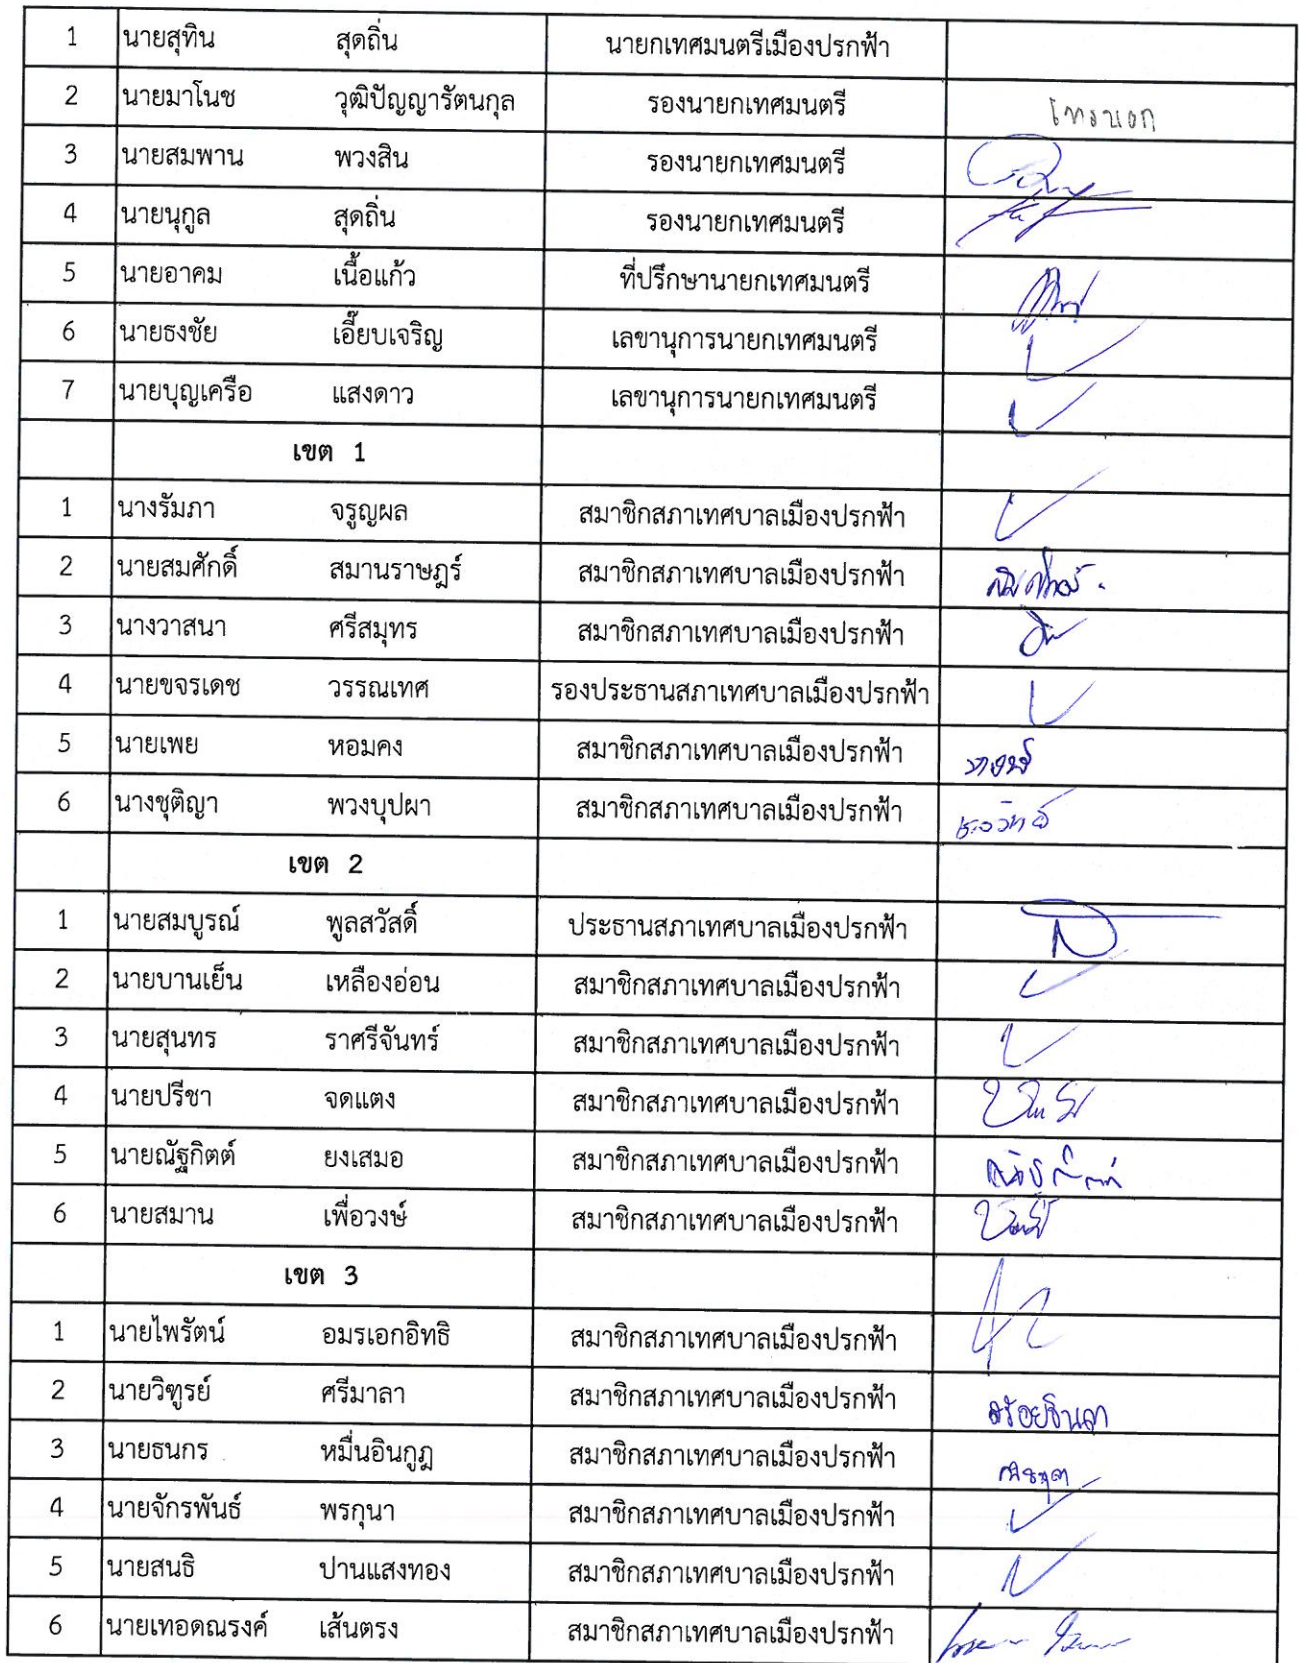 1 นายสุทิน สุดถิ่น นายกเทศมนตรีเมืองปรกฟ้า
2 นายมาโนช วุฒิปัญญารัตนกุล รองนายกเทศมนตรี โทรบอก
3 นายสมพาน พวงสิน รองนายกเทศมนตรี
4 นายนุกูล สุดถิ่น รองนายกเทศมนตรี
5 นายอาคม เนื้อแก้ว ที่ปรึกษานายกเทศมนตรี
6 นายธงชัย เอี๊ยบเจริญ เลขานุการนายกเทศมนตรี
7 นายบุญเครือ แสงดาว เลขานุการนายกเทศมนตรี
เขต 1
1 นางรัมภา จรูญผล สมาชิกสภาเทศบาลเมืองปรกฟ้า
2 นายสมศักดิ์ สมานราษฎร์ สมาชิกสภาเทศบาลเมืองปรกฟ้า
3 นางวาสนา ศรีสมุทร สมาชิกสภาเทศบาลเมืองปรกฟ้า
4 นายขจรเดช วรรณเทศ รองประธานสภาเทศบาลเมืองปรกฟ้า
5 นายเพย หอมคง สมาชิกสภาเทศบาลเมืองปรกฟ้า
6 นางชุติญา พวงบุปผา สมาชิกสภาเทศบาลเมืองปรกฟ้า
เขต 2
1 นายสมบูรณ์ พูลสวัสดิ์ ประธานสภาเทศบาลเมืองปรกฟ้า
2 นายบานเย็น เหลืองอ่อน สมาชิกสภาเทศบาลเมืองปรกฟ้า
3 นายสุนทร ราศรีจันทร์ สมาชิกสภาเทศบาลเมืองปรกฟ้า
4 นายปรีชา จดแตง สมาชิกสภาเทศบาลเมืองปรกฟ้า
5 นายณัฐกิตต์ ยงเสมอ สมาชิกสภาเทศบาลเมืองปรกฟ้า
6 นายสมาน เพื่อวงษ์ สมาชิกสภาเทศบาลเมืองปรกฟ้า
เขต 3
1 นายไพรัตน์ อมรเอกอิทธิ สมาชิกสภาเทศบาลเมืองปรกฟ้า
2 นายวิฑูรย์ ศรีมาลา สมาชิกสภาเทศบาลเมืองปรกฟ้า
3 นายธนกร หมื่นอินกูฎ สมาชิกสภาเทศบาลเมืองปรกฟ้า
4 นายจักรพันธ์ พรกุนา สมาชิกสภาเทศบาลเมืองปรกฟ้า
5 นายสนธิ ปานแสงทอง สมาชิกสภาเทศบาลเมืองปรกฟ้า
6 นายเทอดณรงค์ เส้นตรง สมาชิกสภาเทศบาลเมืองปรกฟ้า